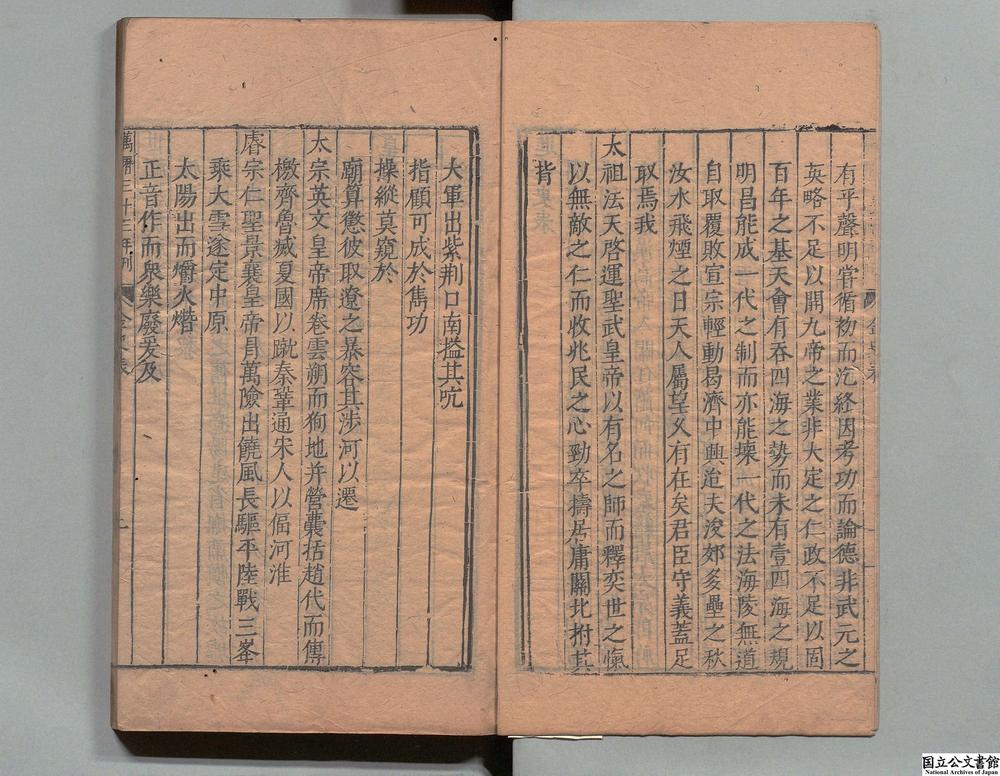 有乎聲明嘗循初而汔終因考功而論德非武元之
英略不足以開九帝之業非大定之仁政不足以固
百年之基天會有吞四海之勢而未有壹四海之規
明昌能成一代之制而亦能壞一代之法海陵無道
自取覆敗宣宗輕動曷濟中興迨夫浚郊多壘之秋
汝水飛煙之日天人屬望又有在矣君臣守義蓋足
取焉我
太祖法天啓運聖武皇帝以有名之師而釋奕世之愾
以無敵之仁而收兆民之心勁卒擣居庸關北拊其
背
大軍出紫荆口南搤其吭
指顧可成於雋功
操縱莫窺於
廟算懲彼取遼之暴容其涉河以遷
太宗英文皇帝席卷雲朔而徇地并營囊括趙代而傳
檄齊魯滅夏國以蹴秦鞏通宋人以偪河淮
睿宗仁聖景襄皇帝冐萬險出饒風長驅平陸戰三峯
乘大雪遂定中原
太陽出而爝火熸
正音作而衆樂廢爰及
萬曆三十三年刊
国立公文書館
National Archives of Japan